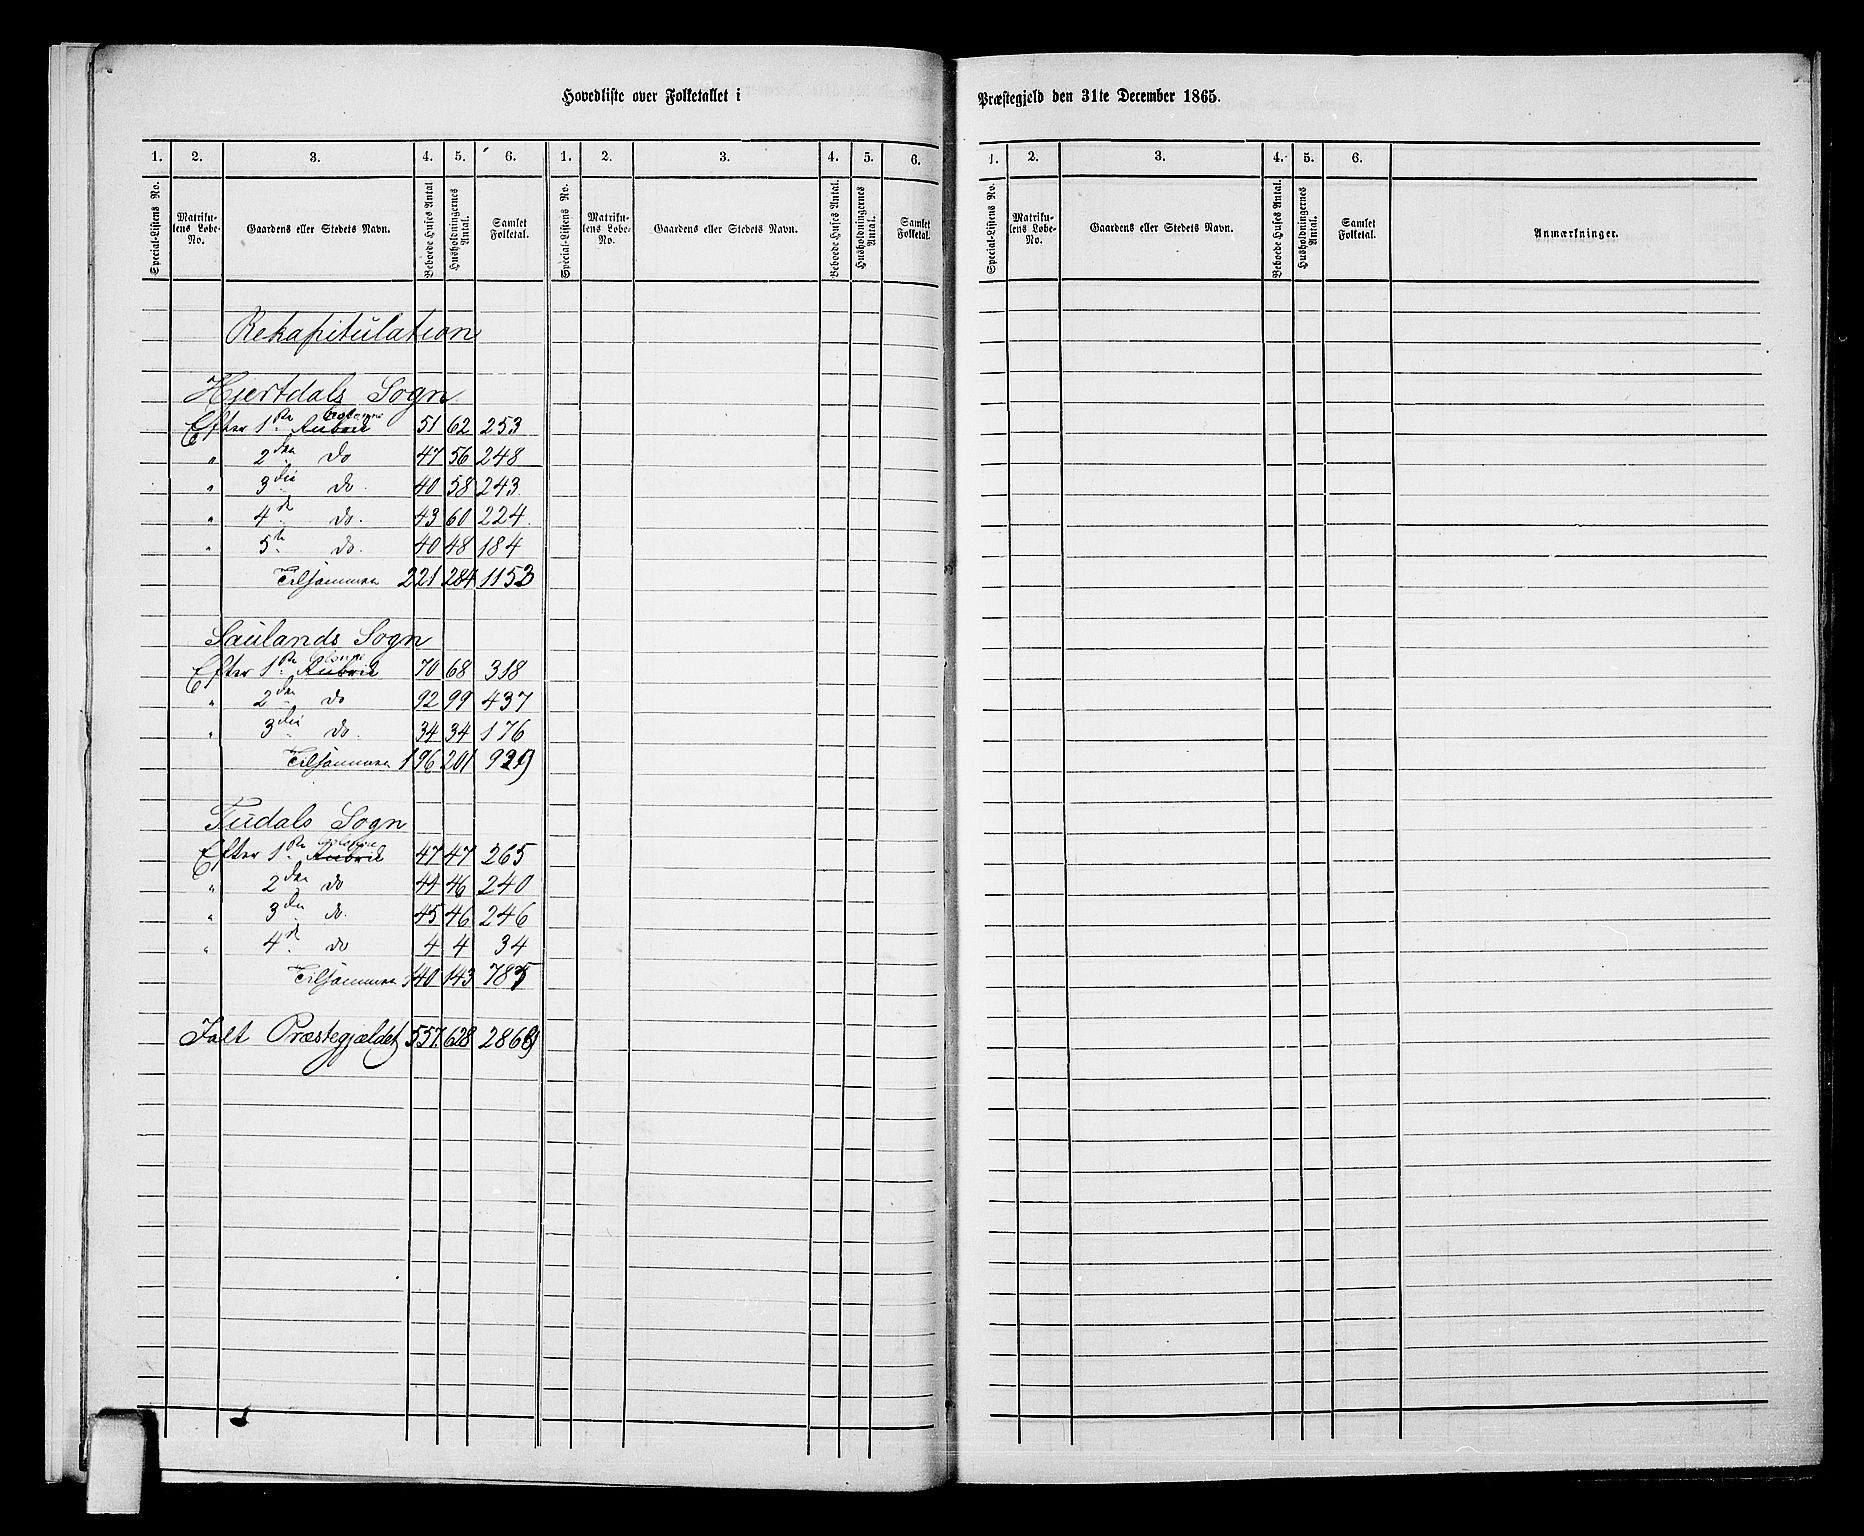 Hovedliste over Folketallet i Præstegjeld den 31te December 1865.
1. 2. 3. 4. 5. 6. 1. 2. 3. 4. 5. 6.
Special-Listens No. Matrikulens Løbe-No. Gaardens eller Stedets Navn. Beboede Huses Antal Husholdningernes Antal. Samlet Folketal. Special-Listens No. Matrikulens Løbe-No. Gaardens eller Stedets Navn. Beboede Huses Antal. Husholdningernes Antal. Samlet Folketal.
Rekapitulation
Hjertdals Sogn
Efter 1ste Rubrik 51 62 253
" 2den do 47 56 248
" 3die do. 40 58 243.
" 4de do. 43 60 224.
" 5te do. 40 48 184
Tilsammen 221 284 1152
Saulands Sogn
Efter 1ste Rubrik 70 68 318
" 2den do 92 99 437
" 3die do. 34 34 176
Tilsammen 196 201 931
Tudals Sogn
Efter 1ste Rubrik 47 47 265
" 2den do 44 46 240
" 3die do. 45 46 246
" 4de do 4 4 34
Tilsammen 140 143 785
Ialt Præstegjældet 557. 628 2868
1. 2. 3. 4. 5. 6.
Special-Listens No. Matrikulens Løbe-No. Gaardens eller Stedets Navn. Beboede Huses Antal. Husholdningernes Antal. Samlet Folketal. Anmærkninger.